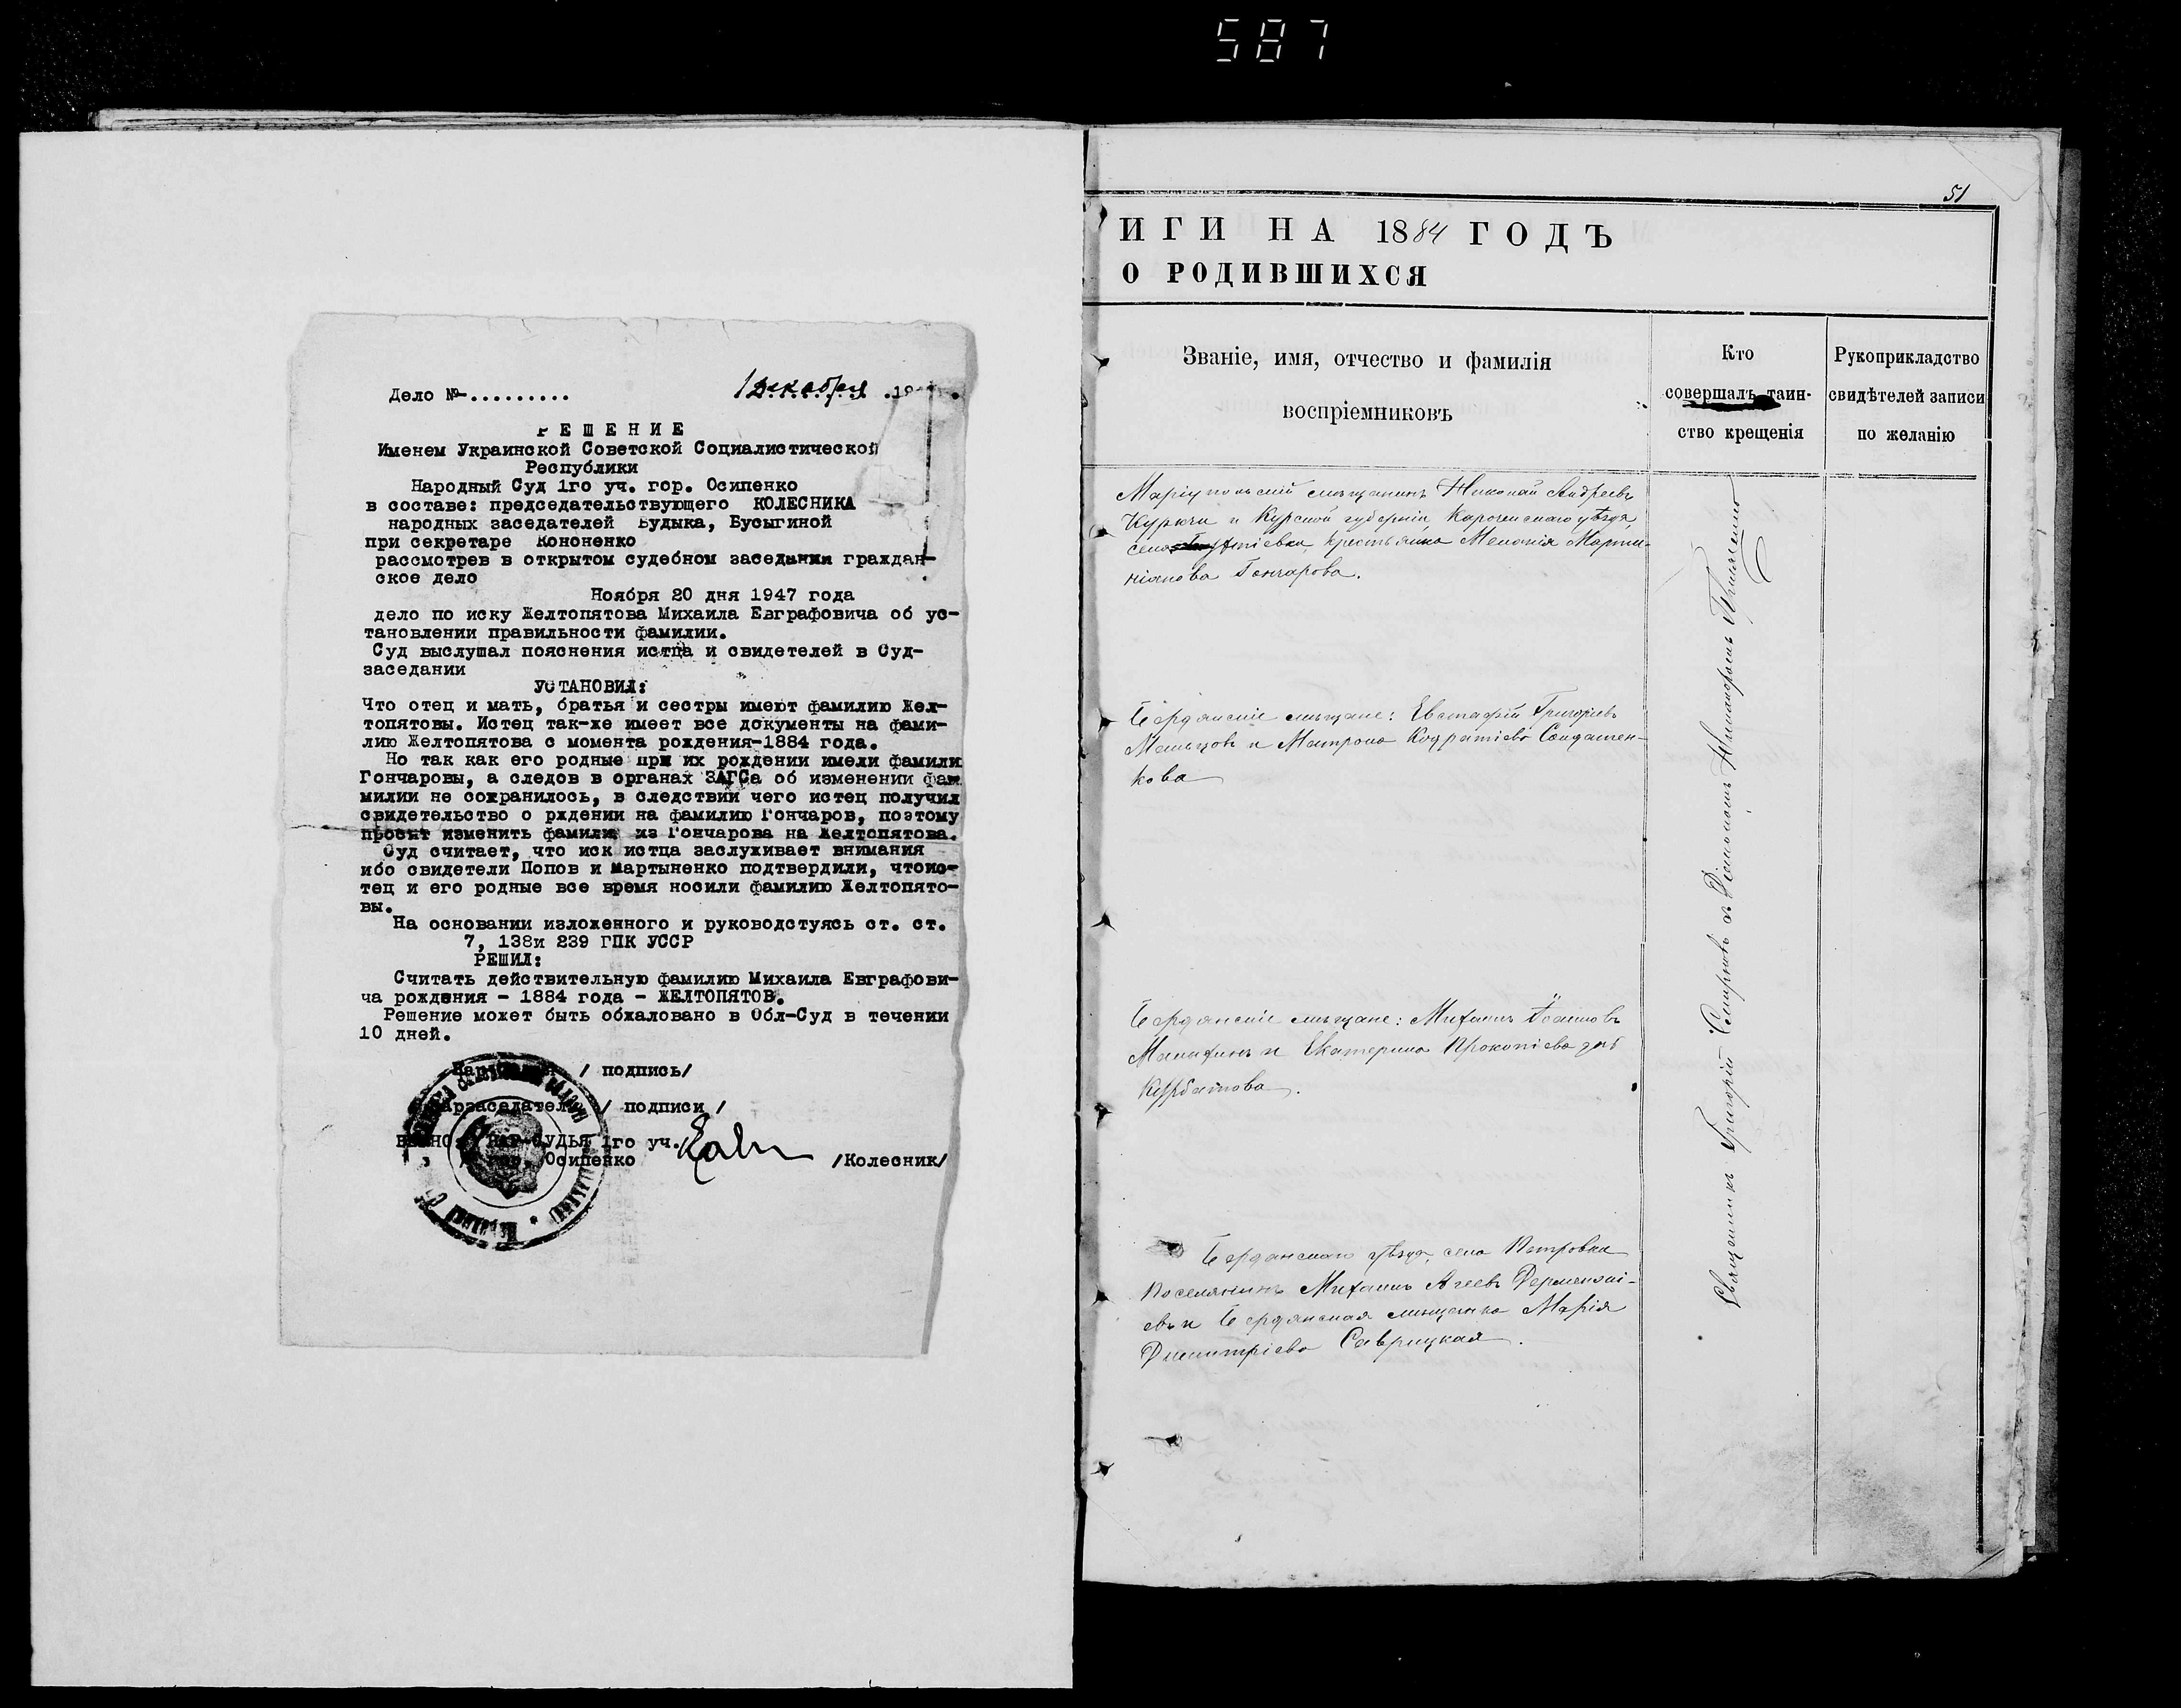 587
Дело №-.........
1 Декабря 19
РЕШЕНИЕ
Именем Украинской Советской Социалистической
Республики
Народный Суд 1го уч. гор. Осипенко
в составе: председательствующего КОЛЕСНИКА
народных заседателей Будыка, Бусыгиной
при секретаре Кононенко
рассмотрев в открытом судебном заседании граждан-
ское дело
Ноября 20 дня 1947 года
дело по иску Желтопятова Михаила Евграфовича об ус-
тановлении правильности фамилии.
Суд выслушал пояснения истца и свидетелей в Суд-
заседании
УСТАНОВИЛ:
Что отец и мать, братья и сестры имеют фамилию Жел-
топятовы. Истец так-же имеет все документы на фами-
лию Желтопятова с момента рождения-1884 года.
Но так как его родные при их рождении имели фамили
Гончаровы, а следов в органах ЗАГСа об изменении фам
милии не сохранилось, в следствии чего истец получил
свидетельство о рждении на фамилию Гончаров, поэтому
просит изменить фамилию из Гончарова на Желтопятова.
Суд считает, что иск истца заслуживает внимания
ибо свидетели Попов и Мартыненко подтвердили, чтоис-
тец и его родные все время носили фамилию Желтопято-
вы.
На основании изложенного и руководстуясь ст. ст.
7, 138и 239 ГПК УССР
РЕШИЛ:
Считать действительную фамилию Михаила Евграфови-
ча рождения - 1884 года - ЖЕЛТОПЯТОВ.
Решение может быть обжаловано в Обл-Суд в течении
10 дней.
/ подпись/
Нарзаседатели / подписи /
ВЕРНО: НАР-СУДЬЯ 1го уч.
гор. Осипенко /Колесник/
51
ИГИ НА 1884 ГОДЪ
О РОДИВШИХСЯ
Званіе, имя, отчество и фамилія
воспріемниковъ
Кто
совершалъ таин-
ство крещенія
Рукоприкладство
свидѣтелей записи
по желанію
Маріупольскій мѣщанинъ Николай Андреевъ
Курючи и Курской губерніи, Корочанскаго уѣзда,
села крестьянка Меланія Марти-
ніанова Гончарова.
Бердянскіе мѣщане: Евстафій Григорьевъ
Мальцовъ и Матрона Кодратіева Солдатен-
кова
Бердянскіе мѣщане: Михаилъ Іоанновъ
Малыхинъ и Екатерина Прокопіева
Курбатова.
Бердянскаго уѣзда, села Петровки
поселянинъ Михаилъ Агеевъ Дерменжі-
евъ и Бердянская мѣщанка Марія
Димитріева Саврицкая.
Священникъ Григорій Смирновъ съ Діакономъ Никифоромъ